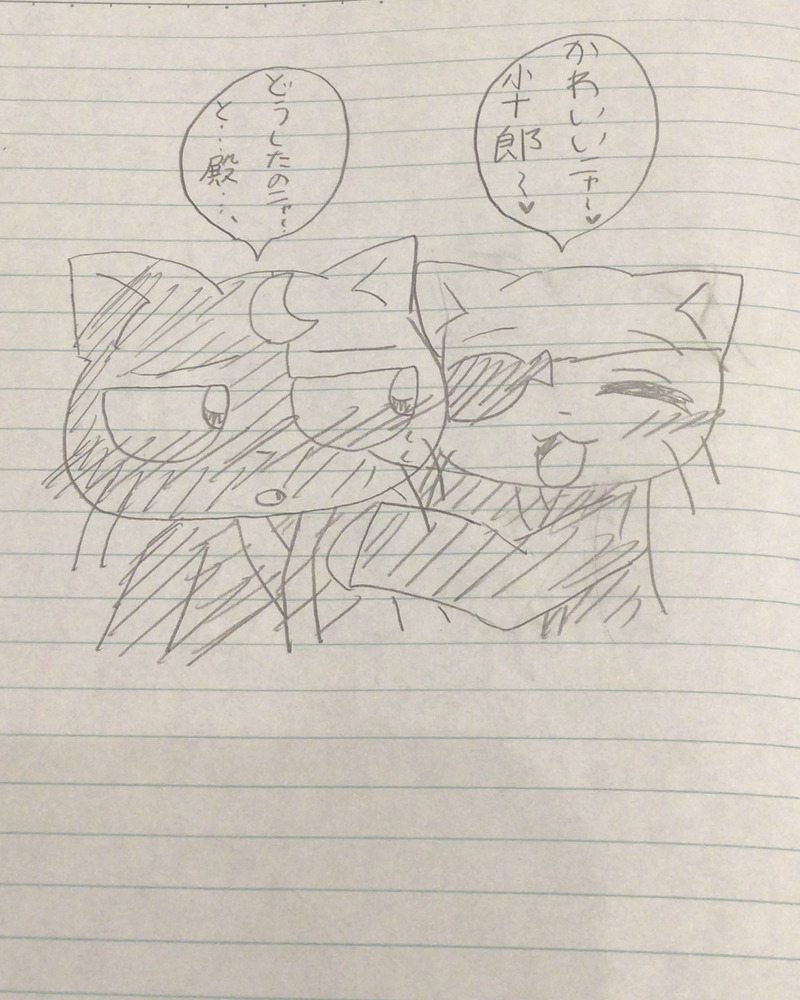 かわいいニャ～♥
小十郎～♥
どうしたのニャ…
と…殿…